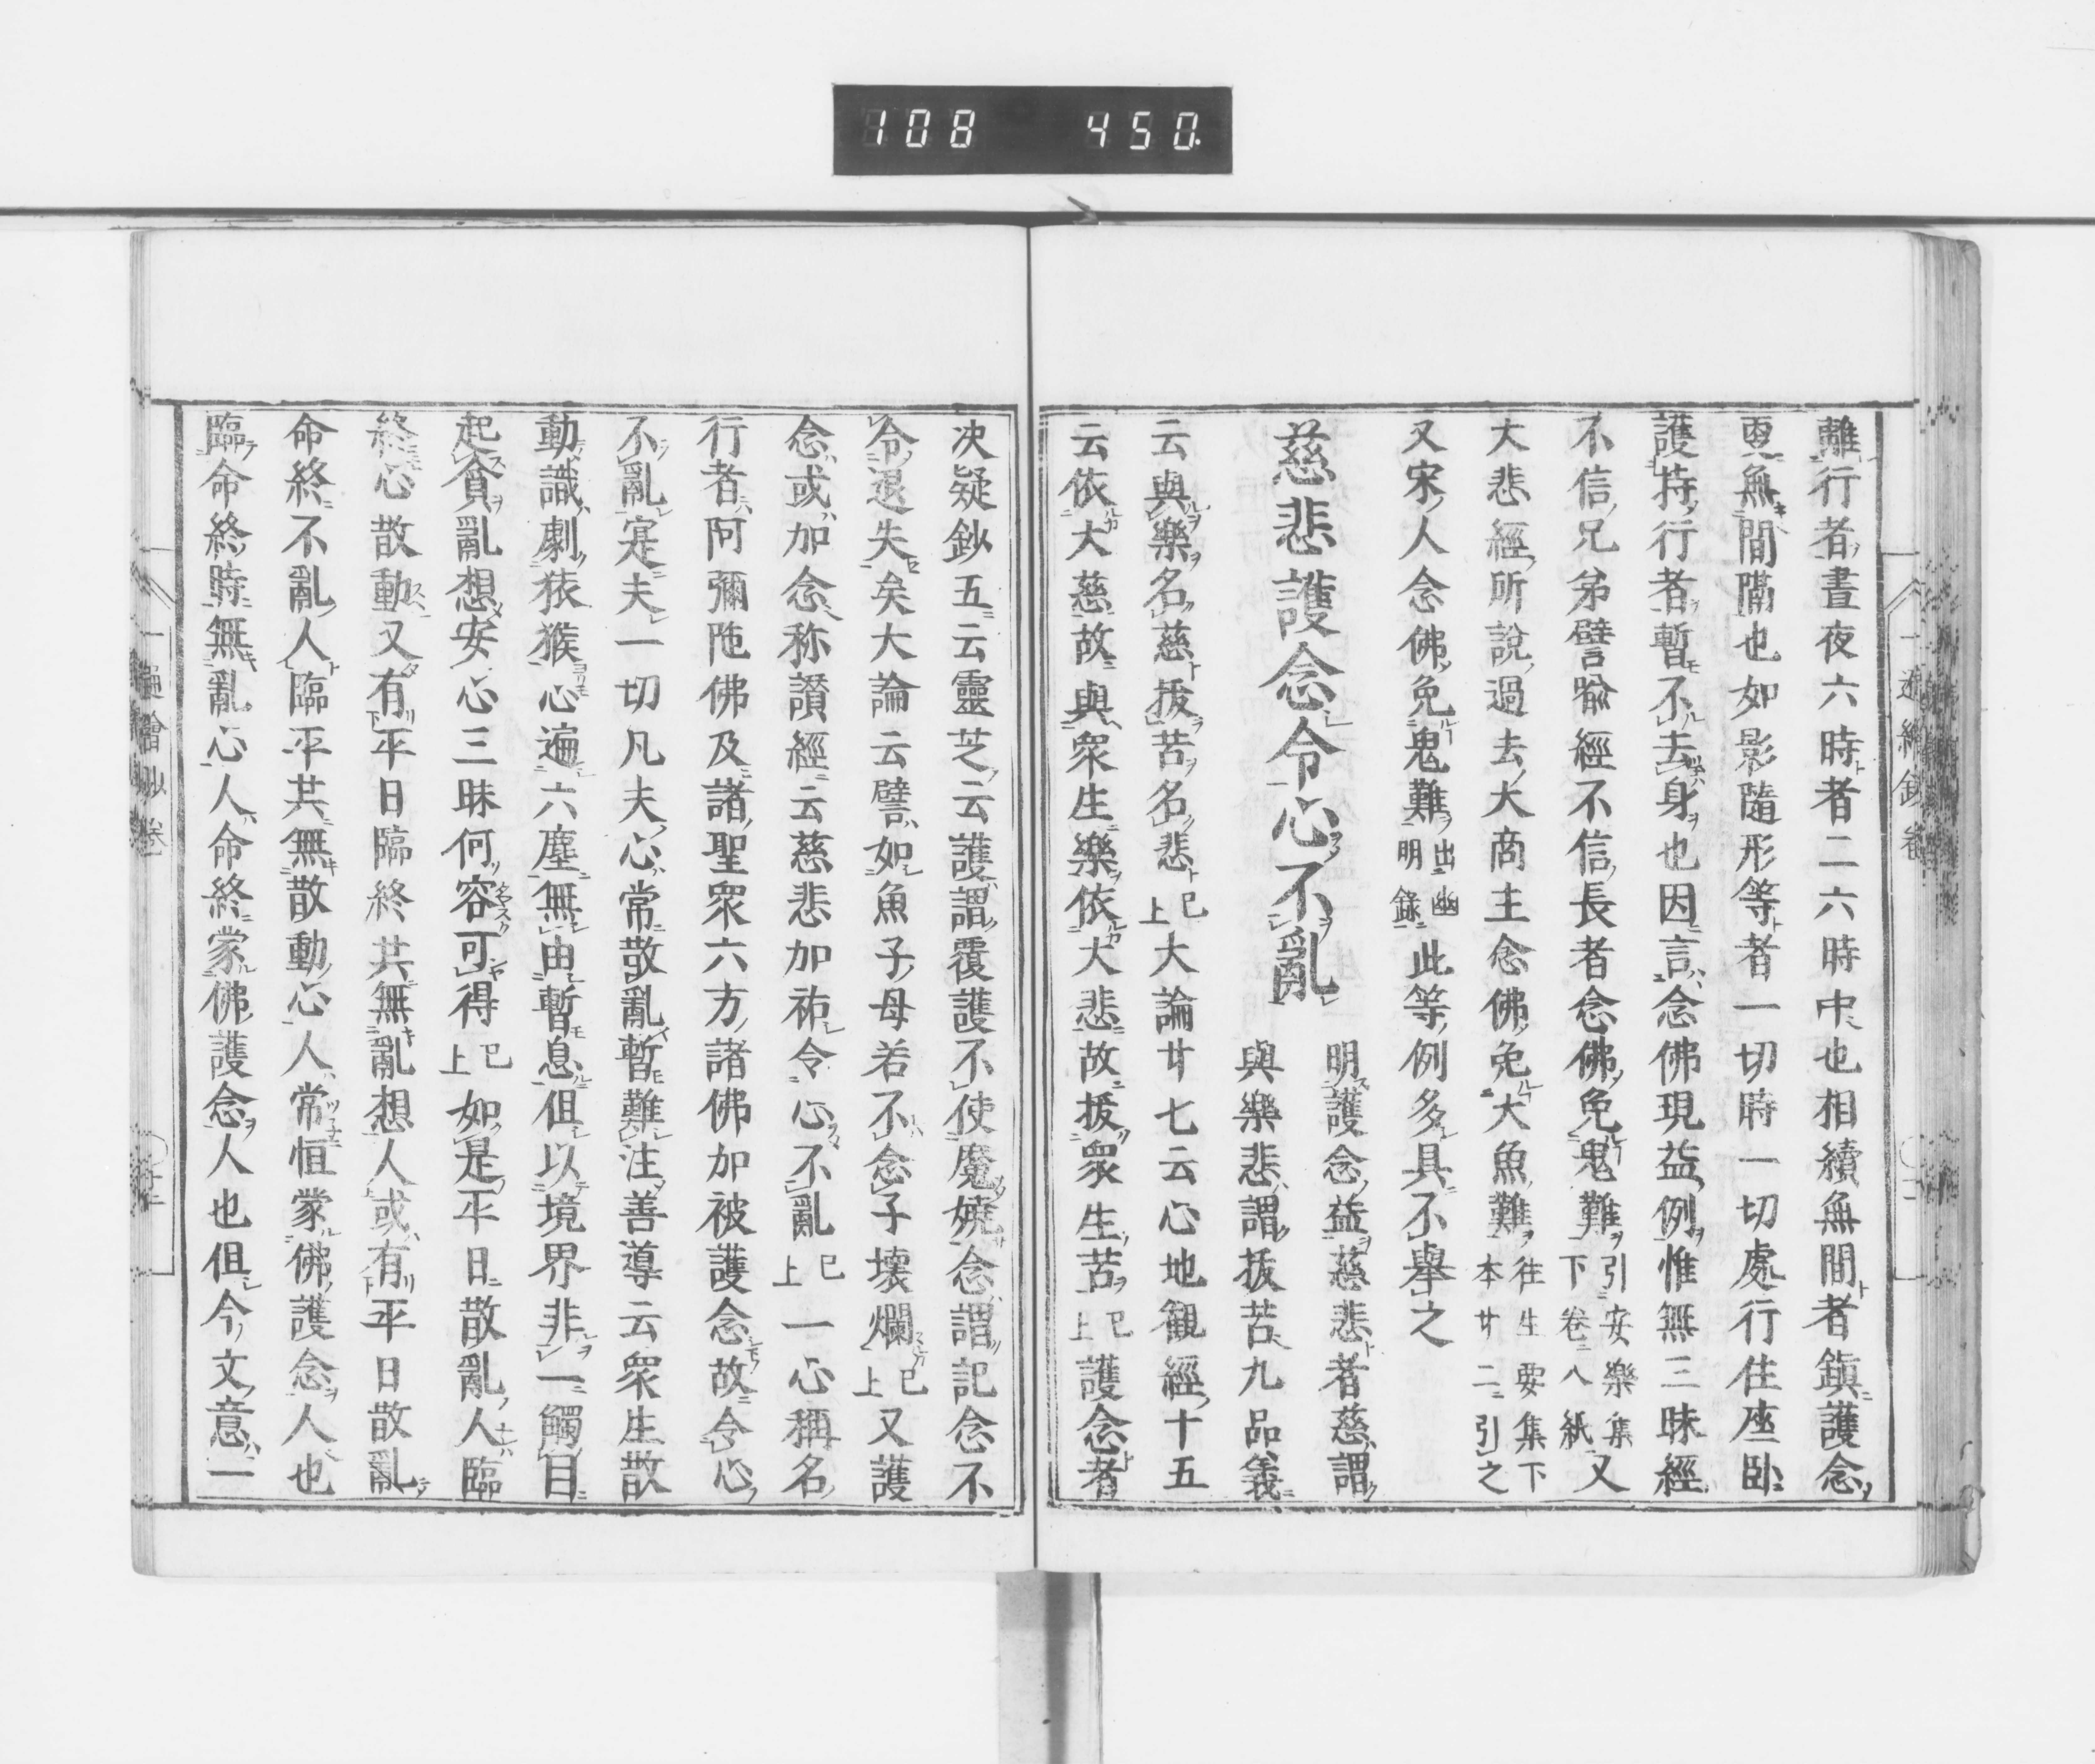 108 450
離行者晝夜六時者二六時中也相續無間者鎭護念
更無間隔也如影隨形等者一切時一切處行住座臥
護持行者暫不去身也因言念佛現益例惟無三昧經
不信兄弟譬喩經不信長者念佛免鬼難引安樂集下卷八紙又
大悲經所說過去大商主念佛免大魚難往生要集下本廿二引之
又宋人念佛免鬼難出幽明録此等例多具不擧之
慈悲護念令心不亂 明護念益慈悲者慈謂
與樂悲謂拔苦九品義
云與樂名慈拔苦名悲已上大論廿七云心地觀經十五
云依大慈故與衆生樂依大悲故拔衆生苦已上護念者
决疑鈔五云靈芝云護謂覆護不使魔嬈念謂記念不
令退失矣大論云譬如魚子母若不念子壞爛已上又護
念或加念称讃經云慈悲加祐令心不亂已上一心稱名
行者阿彌陁佛及諸聖衆六方諸佛加被護念故令心
不亂寔夫一切凡夫心常散亂暫難注善導云衆生散
動識劇猨猴心遍六塵無由暫息但以境界非一觸目
起貪亂想安心三昧何容可得已上如是平日散亂人臨
終心散動又有平日臨終共無亂想人或有平日散亂
命終不亂人臨平共無散動心人常恒蒙佛護念人也
臨命終時無亂心人命終蒙佛護念人也但今文意一